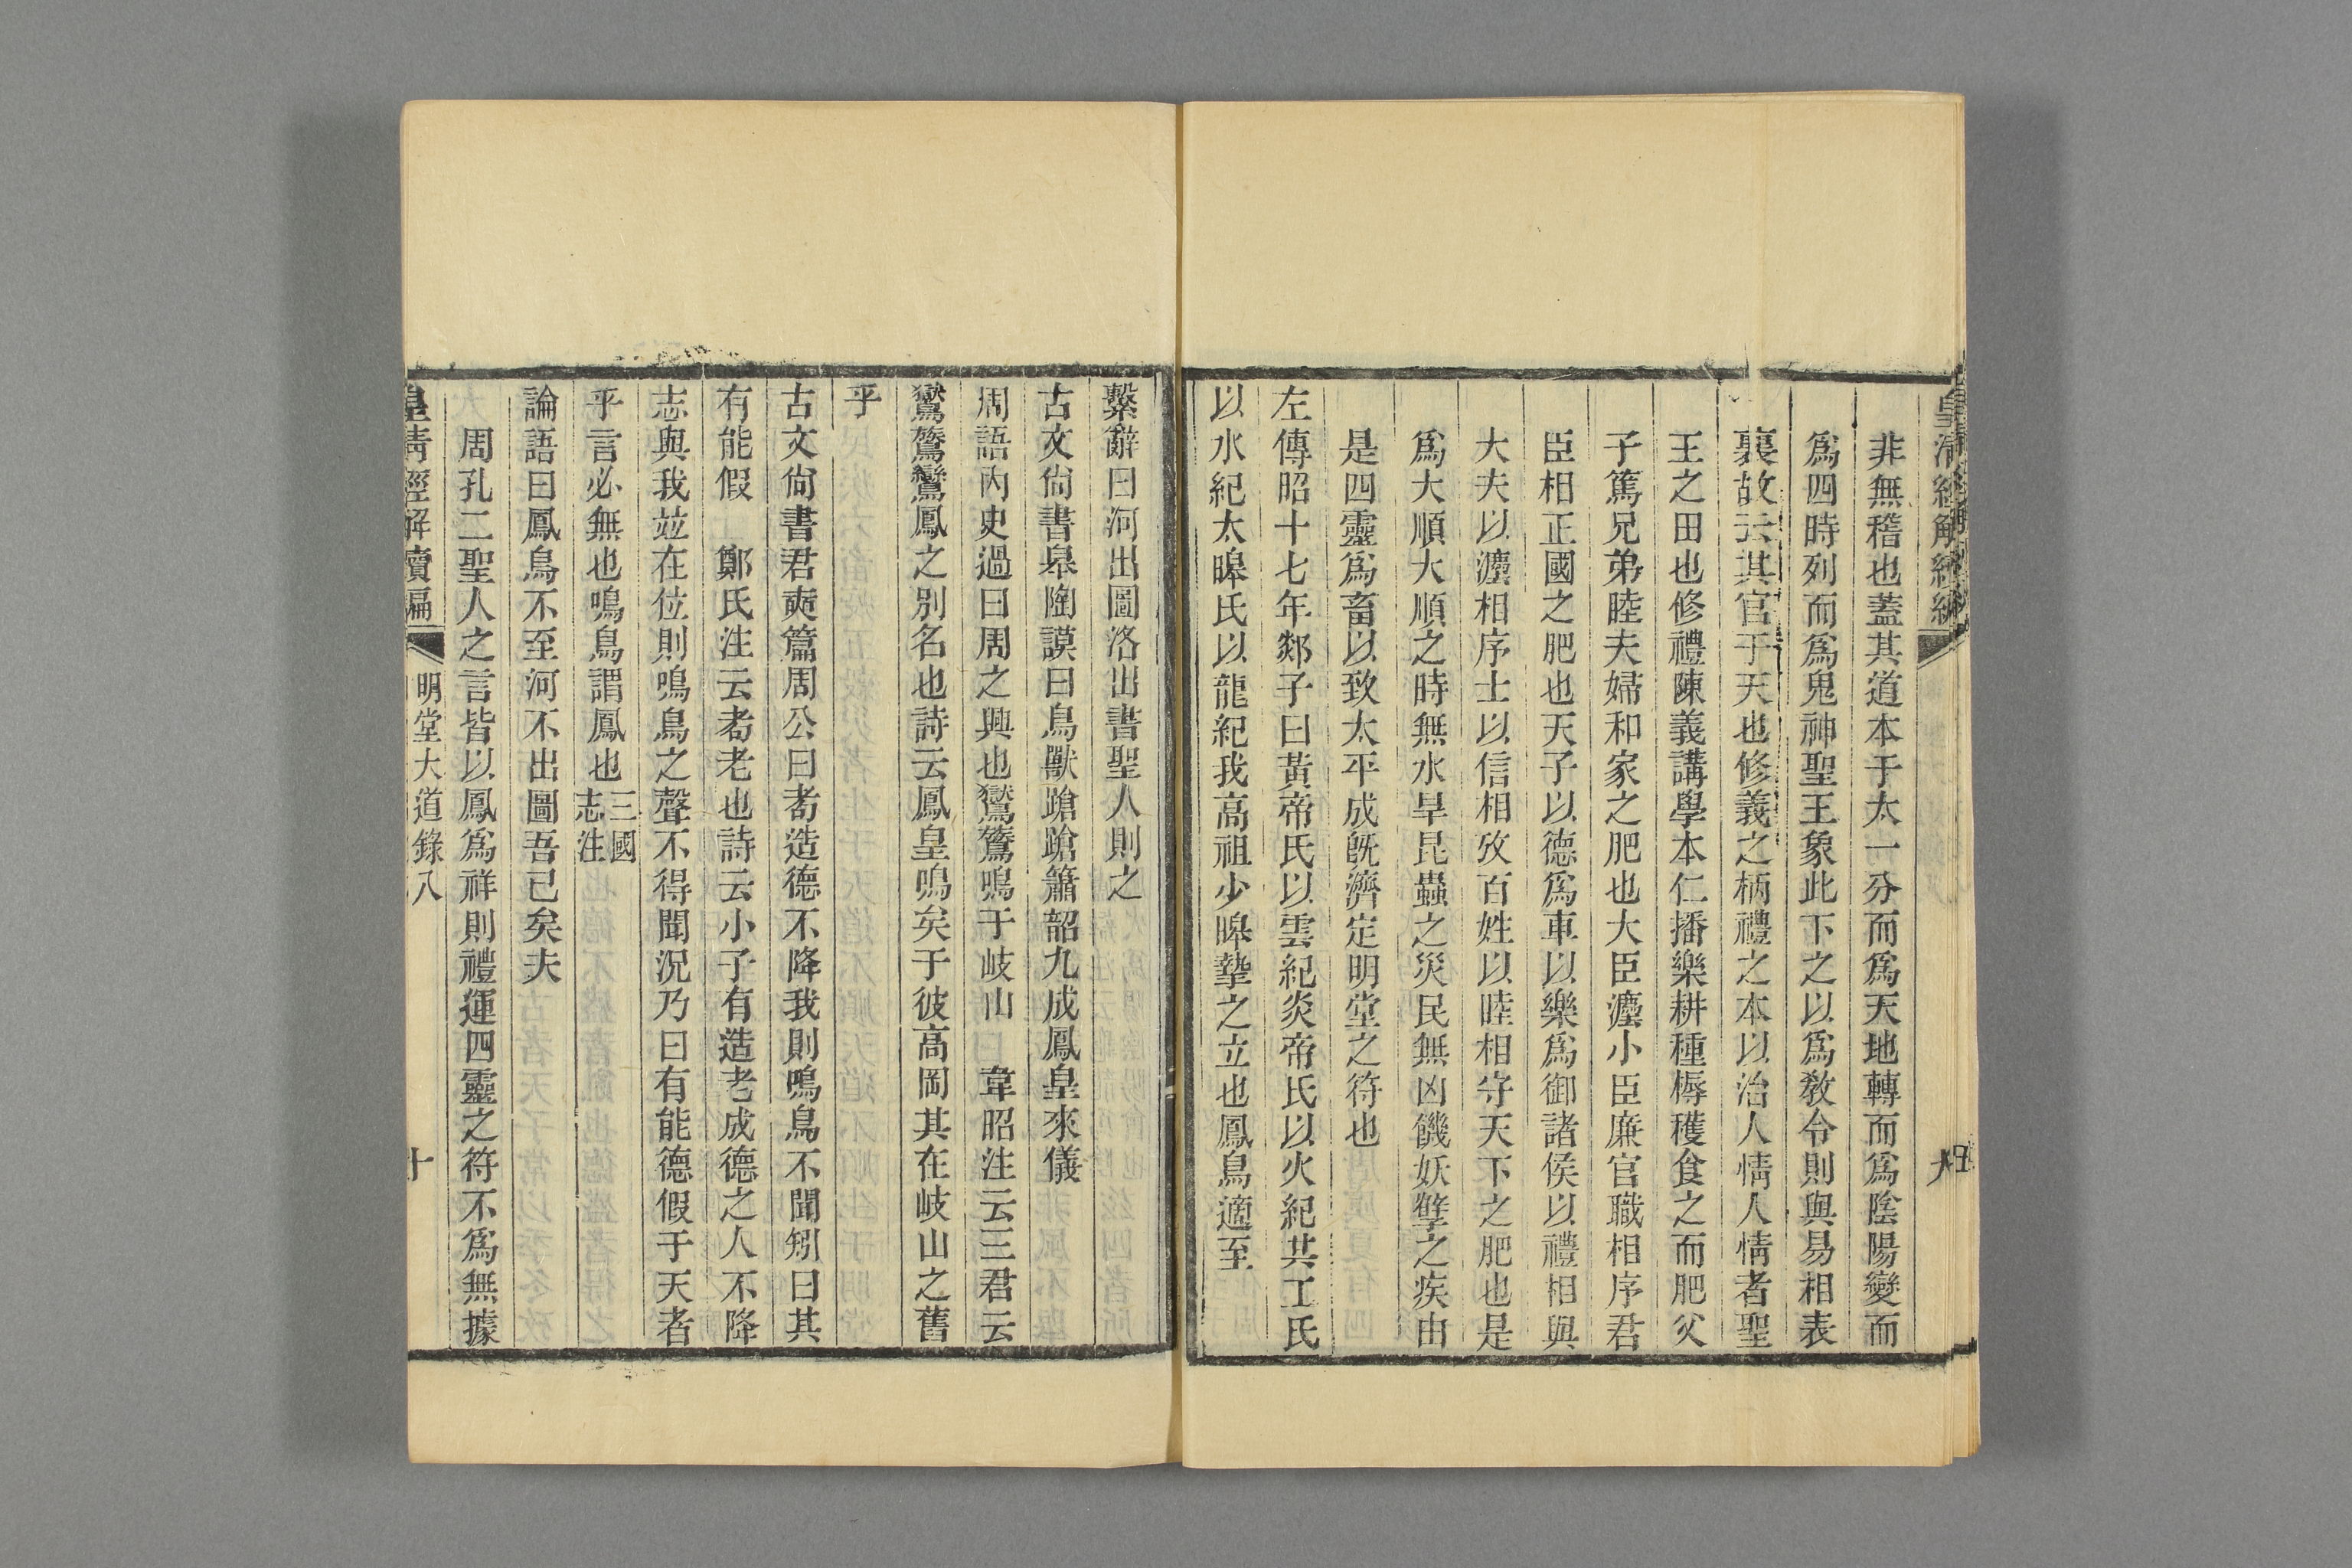 皇清經解續編
非無稽也蓋其道本于太一分而爲天地轉而爲陰陽變而
爲四時列而爲鬼神聖王象此下之以爲敎令則與易相表
裏故云其官于天也修義之柄禮之本以治人情人情者聖
王之田也修禮陳義講學本仁播樂耕種耨穫食之而肥父
子篤兄弟睦夫婦和家之肥也大臣灋小臣廉官職相序君
臣相正國之肥也天子以德爲車以樂爲御諸侯以禮相與
大夫以灋相序士以信相攷百姓以睦相守天下之肥也是
爲大順大順之時無水旱昆蟲之災民無凶饑妖孽之疾由
是四靈爲畜以致太平成旣濟定明堂之符也
左傳昭十七年郯子曰黃帝氏以雲紀炎帝氏以火紀共工氏
以水紀太皥氏以龍紀我高祖少皥摯之立也鳳鳥適至
繫辭曰河出圖洛出書聖人則之
古文尙書皋陶謨曰鳥獸蹌蹌簫韶九成鳳皇來儀
周語內史過曰周之興也鸑鷟鳴于岐山　韋昭注云三君云
鸑鷟鸞鳳之別名也詩云鳳皇鳴矣于彼高岡其在岐山之舊
乎
古文尙書君奭篇周公曰耇造德不降我則鳴鳥不聞矧曰其
有能假　鄭氏注云耇老也詩云小子有造老成德之人不降
志與我竝在位則鳴鳥之聲不得聞況乃曰有能德假于天者
乎言必無也鳴鳥謂鳳也三國志注
論語曰鳳鳥不至河不出圖吾已矣夫
周孔二聖人之言皆以鳳爲祥則禮運四靈之符不爲無據
皇清經解續編　明堂大道錄八　十